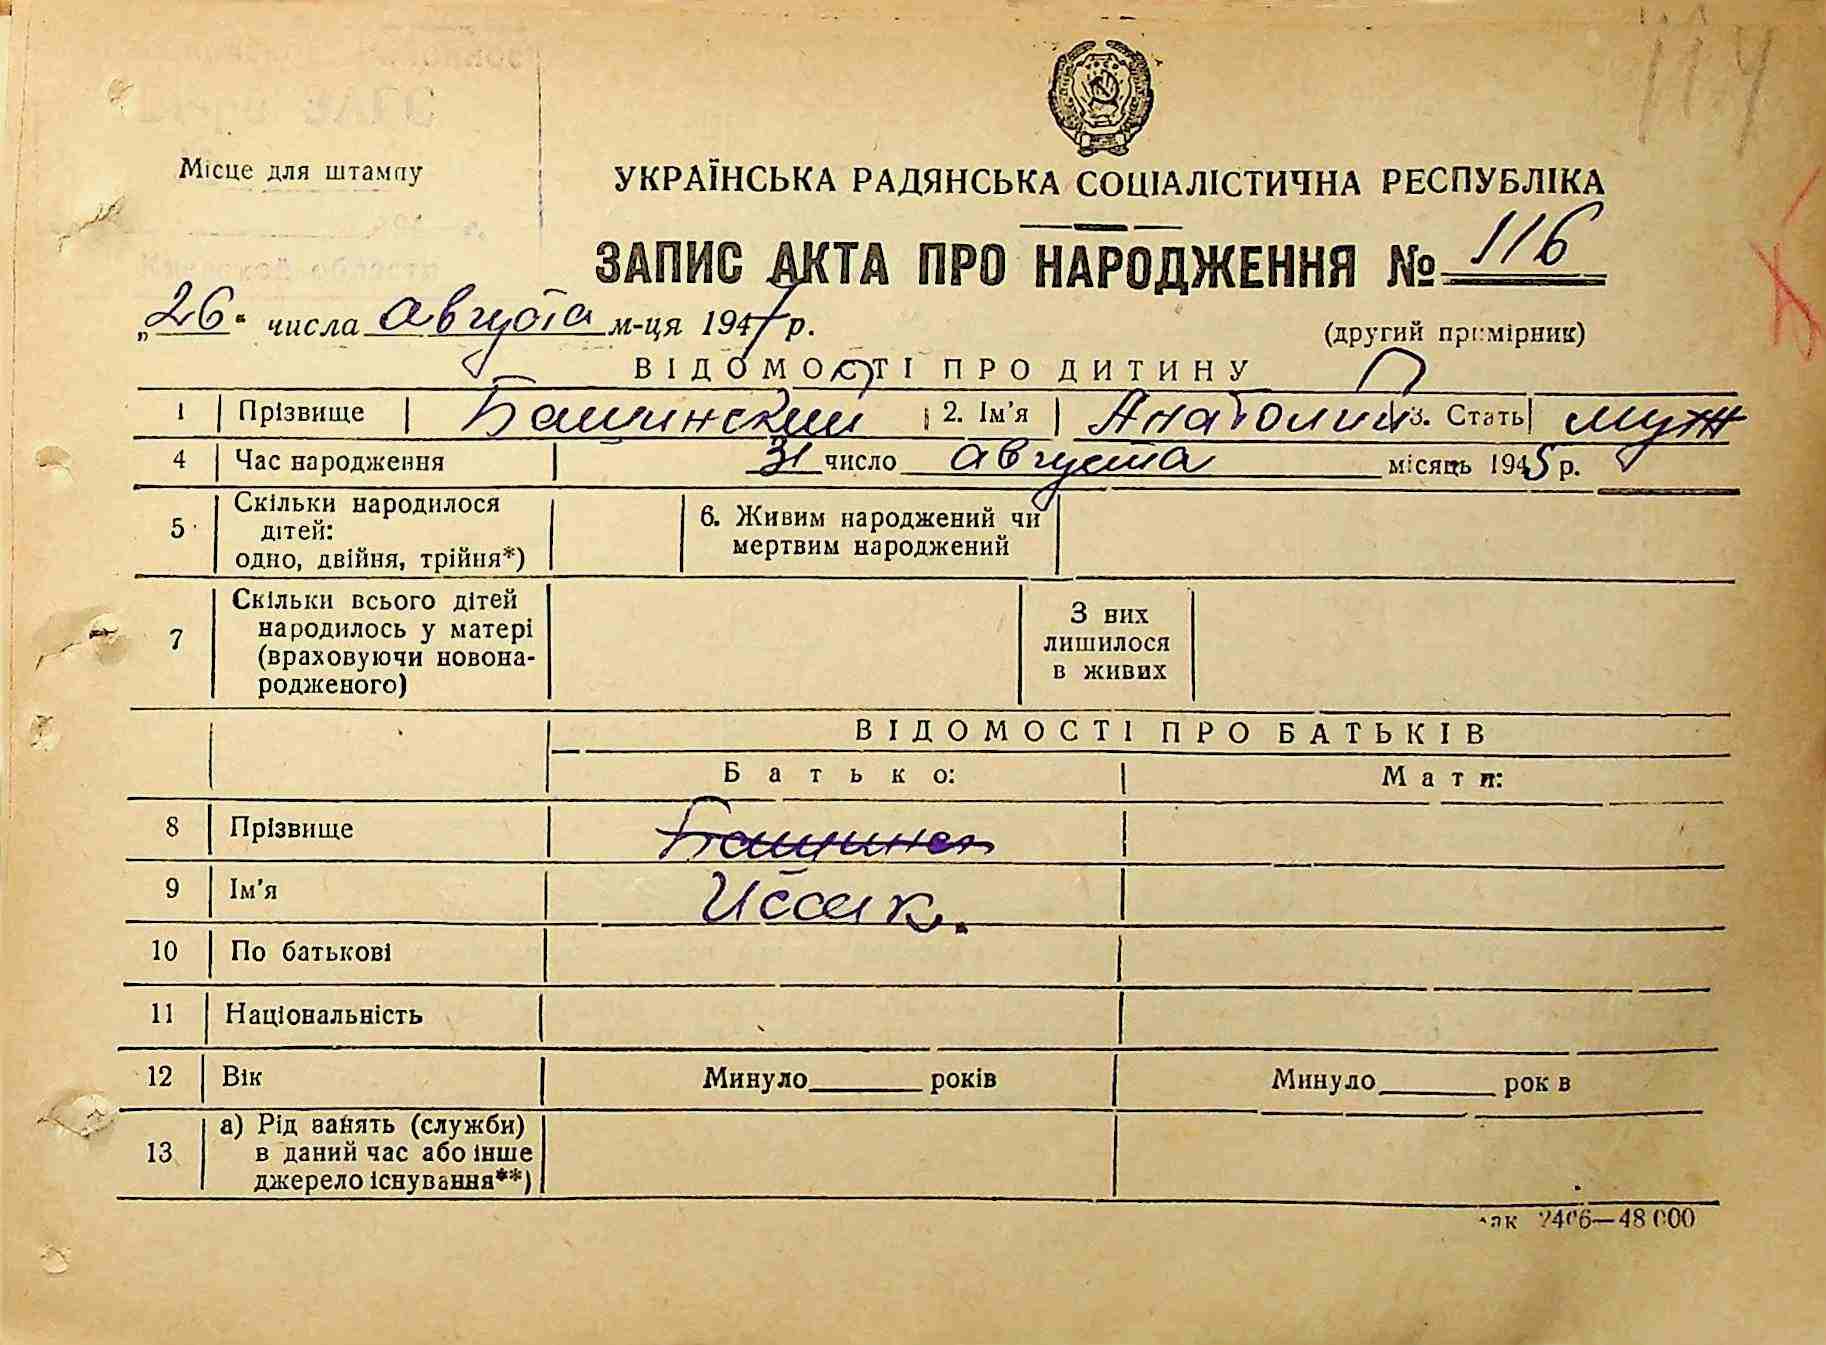 114
Місце для штампу
УКРАЇНСЬКА РАДЯНСЬКА СОЦІАЛІСТИЧНА РЕСПУБЛІКА
ЗАПИС АКТА ПРО НАРОДЖЕННЯ № 116
„26“ числа августа м-ця 1947 р.
(другий примірник)
ВІДОМОСТІ ПРО ДИТИНУ
1 Прізвище Башинский 2. Ім'я Анатолий 3. Стать муж
4 Час народження 31 число августа місяць 1945 р.
5 Скільки народилося дітей: одно, двійня, трійня*) 6. Живим народжений чи мертвим народжений
7 Скільки всього дітей народилось у матері (враховуючи новона-родженого) З них лишилося в живих
ВІДОМОСТІ ПРО БАТЬКІВ
Батько: Мати:
8 Прізвище
9 Ім'я Исаак.
10 По батькові
11 Національність
12 Вік Минуло______ років Минуло______ рок в
13 а) Рід занять (служби) в даний час або інше джерело існування**)
2406—48 000